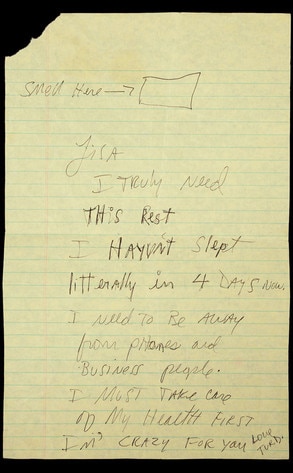 Smell Here →
Lisa
I Truly Need
THis Rest
I HAvVNt Slept
litterally in 4 DAys Now.
I need To Be AWAY
from pHones and
Business people.
I MUST TAke care
of My HealtH FIRST
I'M CRAZY FoR you
Love
TURD.